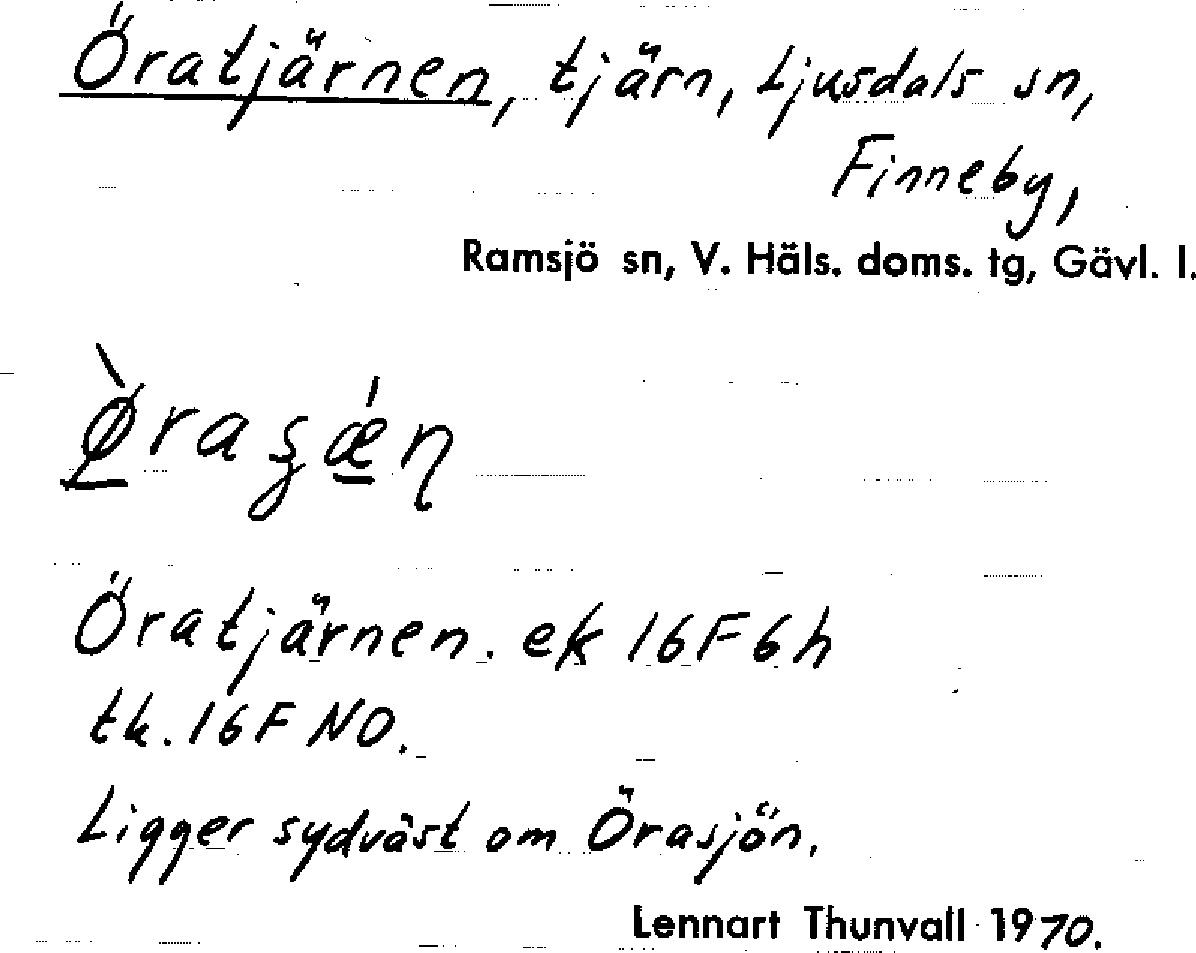 Öratjärnen, tjärn, Ljusdals sn,
Finneby,
Ramsjö sn, V. Häls. doms. tg, Gävl. l.
Öratjärnen. ek 16F6h
tk. 16F NO.
Ligger sydväst om Örasjön.
Lennart Thunvall 1970.